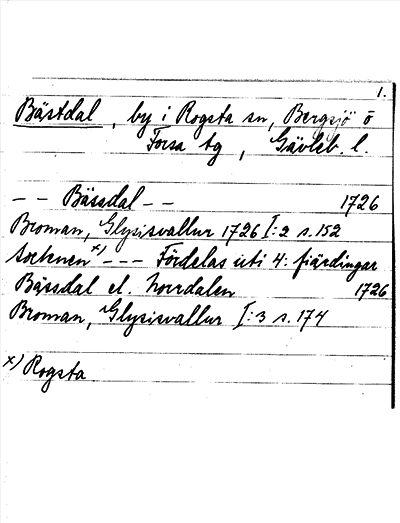 1.
Bästdal, by i Rogsta sn, Bergsjö o
Forsa tg, Gävleb. l.
-- Bässdal -- 1726
Broman, Glysisvallur 1726 I:2 s. 152
socknen x) --- Fördelas uti 4: fiärdingar
Bässdal el. Norrdalen 1726
Broman, Glysisvallur I:3 s. 174
x) Rogsta